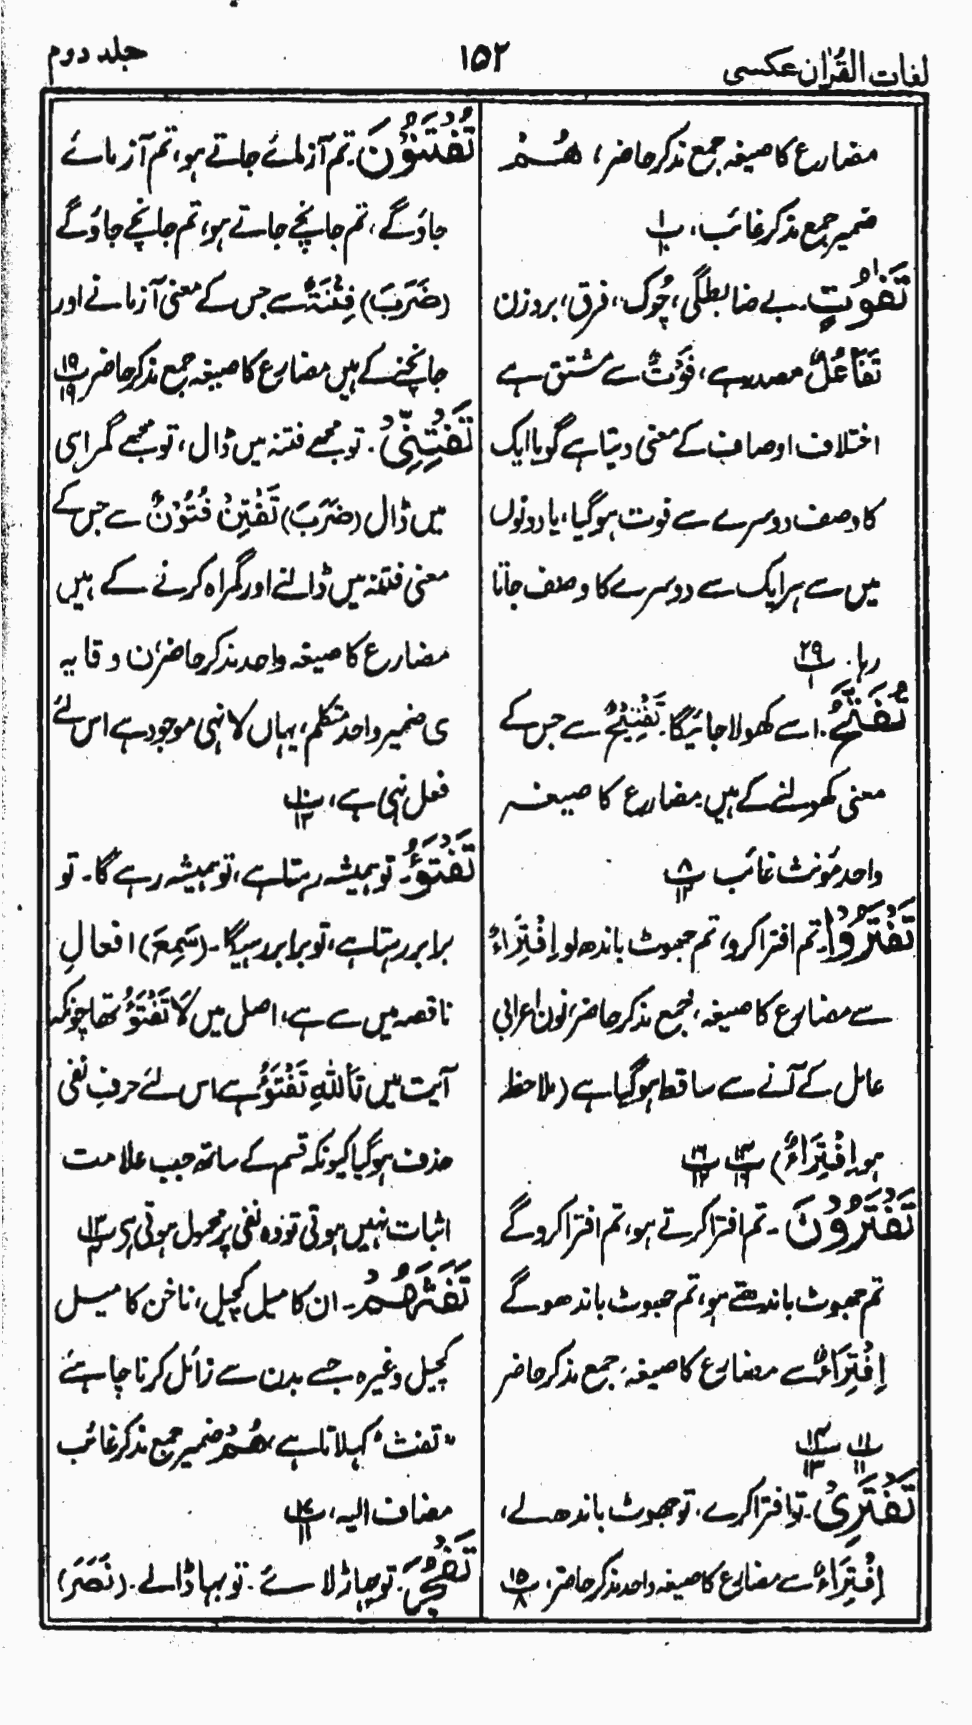 لغات القرآن عکسی
۱۵۲
جلد دوم
مضارع کا صیغہ جمع مذکر حاضر، هُمْ
ضمیر جمع مذکر غائب، پ ۱/۱۰
تَفٰوُتٍ۔ بے ضابطگی، چُوک، فرق، بروزن
تَفَاعُلٌ مصدر ہے، فَوْتٌ سے مشتق ہے
اختلاف اوصاف کے معنی دیتا ہے گویا ایک
کا وصف دوسرے سے فوت ہوگیا، یا دونوں
میں سے ہر ایک سے دوسرے کا وصف جاتا
رہا۔ پ ۲۹/۱
تُفَتَّحُ۔ اسے کھولا جائیگا۔ تَفْتِیْحٌ سے جس کے
معنی کھولنے کے ہیں۔ مضارع کا صیغہ
واحد مؤنث غائب پ ۸/۱۲
تَفْتَرُوْا۔ تم افترا کرو، تم جھوٹ باندھ لو اِفْتِرَاءٌ
سے مضارع کا صیغہ، جمع مذکر حاضر، نون اعرابی
عامل کے آنے سے ساقط ہوگیا ہے (ملاحظہ
ہو اِفْتِرَاءٌ) پ پ
تَفْتَرُوْنَ۔ تم افترا کرتے ہو، تم افترا کروگے
تم جھوٹ باندھتے ہو، تم جھوٹ باندھوگے
اِفْتِرَاءٌ سے مضارع کا صیغہ، جمع مذکر حاضر
پ ۱۱/۱۱ پ ۱۴/۱۳
تَفْتَرِیَ۔ تو افترا کرے، تو جھوٹ باندھ لے،
اِفْتِرَاءٌ سے مضارع کا صیغہ واحد مذکر حاضر، پ ۱۵/۸
تُفْتَنُوْنَ۔ تم آزمائے جاتے ہو، تم آزمائے
جاؤگے، تم جانچے جاتے ہو، تم جانچے جاؤگے
(ضَرَبَ) فِتْنَةٌ سے جس کے معنی آزمانے اور
جانچنے کے ہیں مضارع کا صیغہ جمع مذکر حاضر پ ۱۹/۱۹
تَفْتِنِّیْ۔ تو مجھے فتنہ میں ڈال، تو مجھے گمراہی
میں ڈال (ضَرَبَ) تَفْتِنْ فُتُوْنٌ سے جس کے
معنی فتنہ میں ڈالنے اور گمراہ کرنے کے ہیں
مضارع کا صیغہ واحد مذکر حاضر، ن وقایہ
ی ضمیر واحد متکلم، یہاں لا نہی موجود ہے اس لئے
فعل نہی ہے، پ ۱۰/۱۳
تَفْتَؤُ۔ تو ہمیشہ رہتا ہے، تو ہمیشہ رہے گا۔ تو
برابر رہتا ہے، تو برابر رہیگا۔ (سَمِعَ) افعالِ
ناقصہ میں سے ہے، اصل میں لَا تَفْتَؤُ تھا چونکہ
آیت میں تَاللّٰهِ تَفْتَؤُ ہے اس لئے حرفِ نفی
حذف ہوگیا کیونکہ قسم کے ساتھ جب علامت
اثبات نہیں ہوتی تو وہ نفی پر محمول ہوتی ہے پ ۱۳/۴
تَفَثَهُمْ۔ ان کا میل کچیل، ناخن کا میل
کچیل وغیرہ جسے بدن سے زائل کرنا چاہئے
"تفث" کہلاتا ہے، هُمْ ضمیر جمع مذکر غائب
مضاف الیہ، پ ۱۷/۱۱
تَفْجُرَ۔ تو پھاڑ لائے۔ تو بہا ڈالے۔ (نَصَرَ)